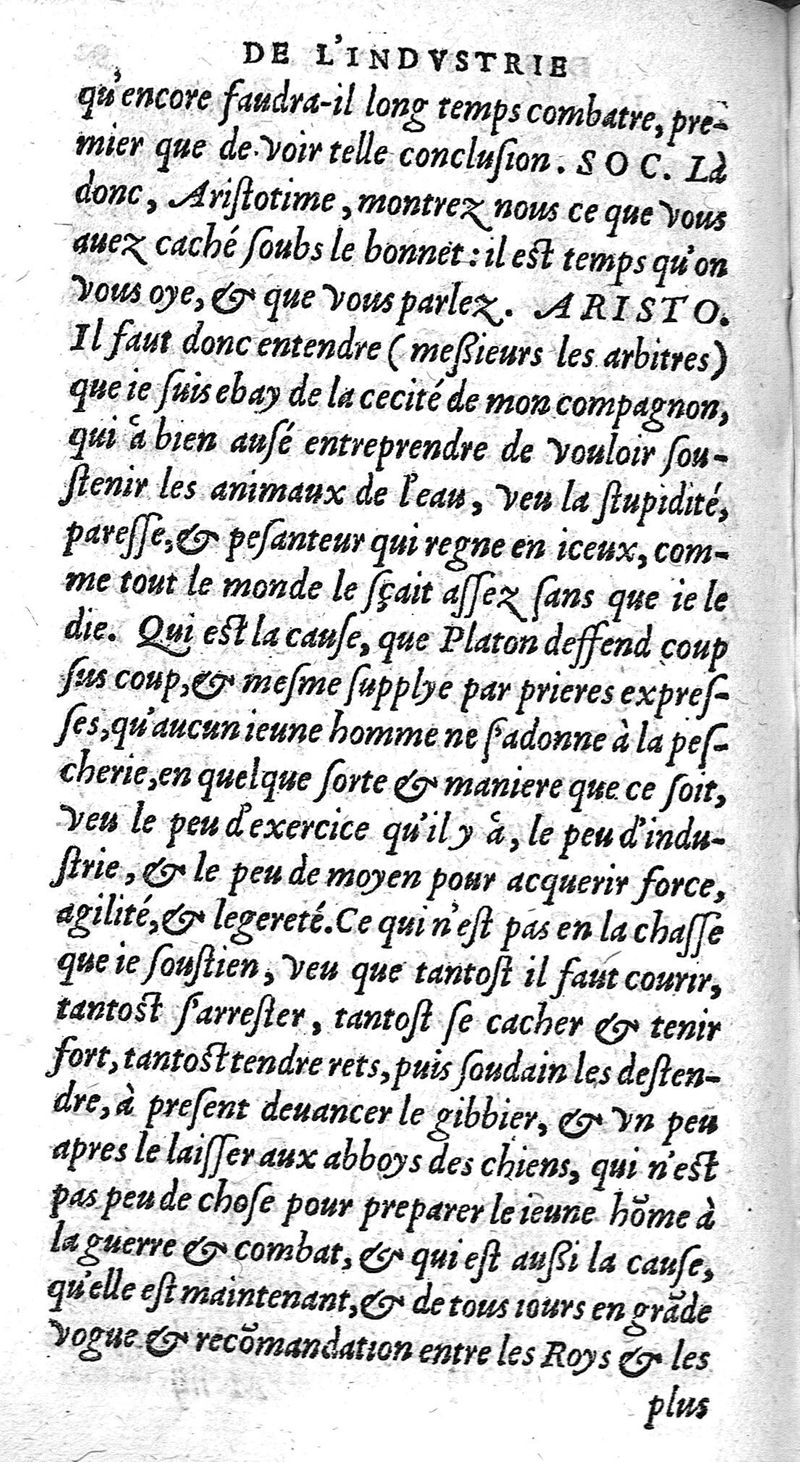 DE L'INDVSTRIE
qu'encore faudra-il long temps combatre, pre-
mier que de voir telle concluſion. SOC. Là
donc, Ariſtotime, montrez nous ce que vous
auez caché ſoubs le bonnet: il eſt temps qu'on
vous oye, & que vous parlez. ARISTO.
Il faut donc entendre (meßieurs les arbitres)
que ie ſuis ebay de la cecité de mon compagnon,
qui à bien auſé entreprendre de vouloir ſou-
ſtenir les animaux de l'eau, veu la ſtupidité,
pareſſe, & peſanteur qui regne en iceux, com-
me tout le monde le ſçait aſſez ſans que ie le
die. Qui eſt la cauſe, que Platon deffend coup
ſus coup, & meſme ſupplye par prieres expreſ-
ſes, qu'aucun ieune homme ne ſ'adonne à la peſ-
cherie, en quelque ſorte & maniere que ce ſoit,
veu le peu d'exercice qu'il y à, le peu d'indu-
ſtrie, & le peu de moyen pour acquerir force,
agilité, & legereté. Ce qui n'eſt pas en la chaſſe
que ie ſouſtien, veu que tantoſt il faut courir,
tantoſt ſ'arreſter, tantoſt ſe cacher & tenir
fort, tantoſt tendre rets, puis ſoudain les deſten-
dre, à preſent deuancer le gibbier, & vn peu
apres le laiſſer aux abboys des chiens, qui n'eſt
pas peu de choſe pour preparer le ieune hõme à
la guerre & combat, & qui eſt außi la cauſe,
qu'elle eſt maintenant, & de tous iours en grãde
vogue & recõmandation entre les Roys & les
plus